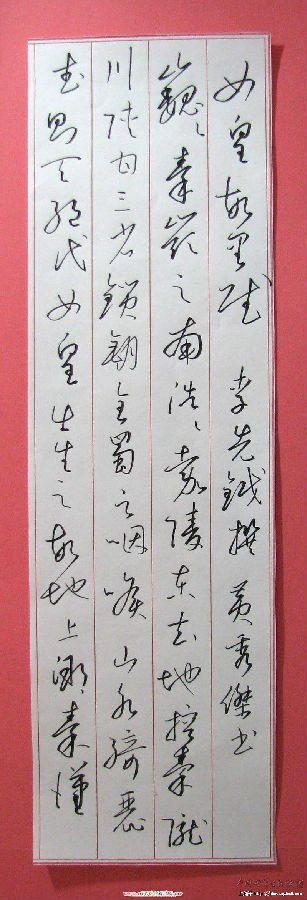 女皇故里赋 李先钺撰 黄秀杰书
巍巍秦岭之南浩浩嘉陵东去地控秦陇
川陕甘三省锁钥全蜀之咽喉山水绮丽
武则天绝代女皇出生之故地上溯秦汉